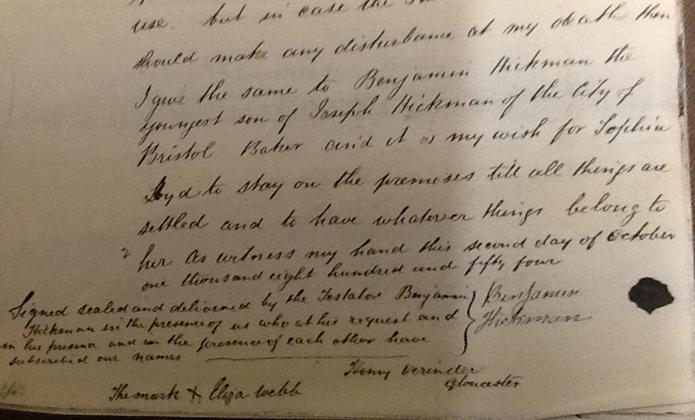 use. but in case the
should make any disturbance at my death then
I give the same to Benjamin Hickman the
youngest son of Joseph Hickman of the City of
Bristol Baker and it is my wish for Sophia
Loyd to stay on the premeses till all things are
settled and to have whatever things belong to
her As witness my hand this second day of October
one thousand eight hundred and fifty four
Signed sealed and delivered by the Testator Benjamin
Hickman in the presence of us who at his request and
in his presence and in the presence of each other have
subscribed our names
Benjamin
Hickman
Henry Verinder
Gloucester
The mark X Eliza Webb